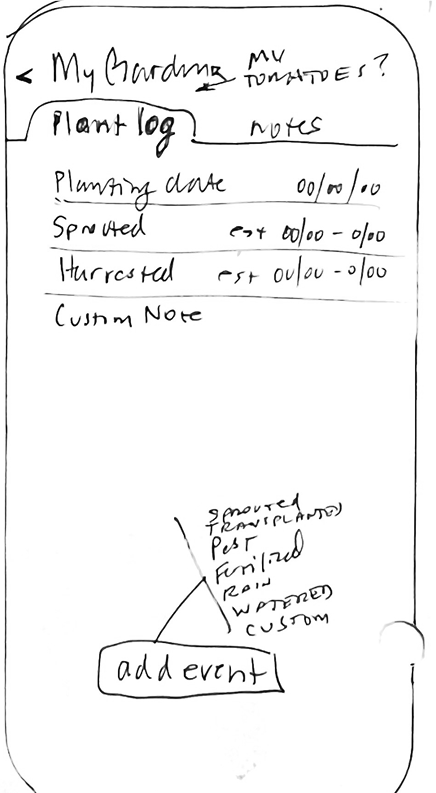 < My Gardens
MY
TOMATOES?
Plant log
Notes
Planting date 00/00/00
Sprouted est 00/00 - 0/00
Harvested est 00/00 - 0/00
Custom Note
Sprouted
TRANSPLANTED
Pest
Fertilized
RAIN
WATERED
CUSTOM
add event